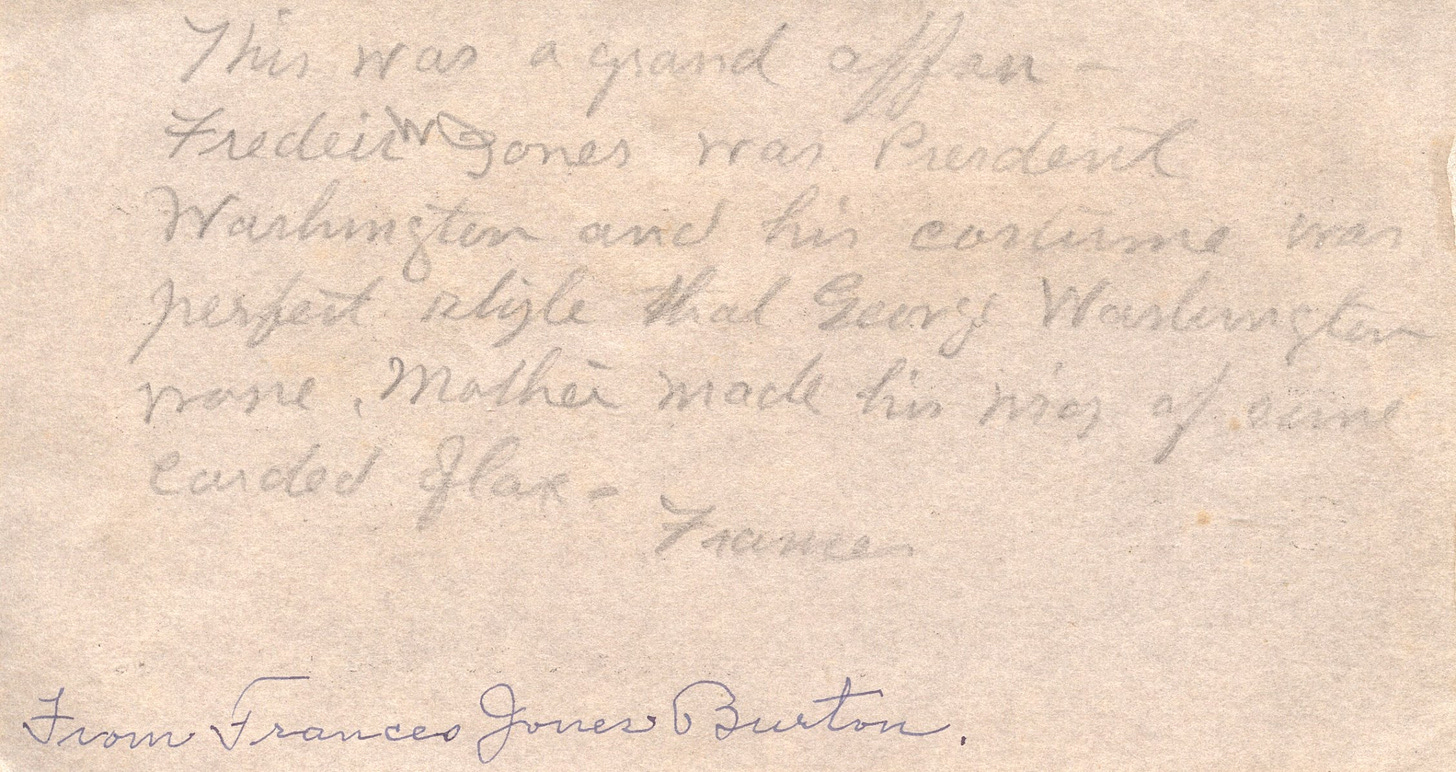 This was a grand affair -
Frederic W Jones was President
Washington and his costume was
perfect style that George Washington
wore. Mother made his wig of some
carded flax -
Frances
From Frances Jones Burton.